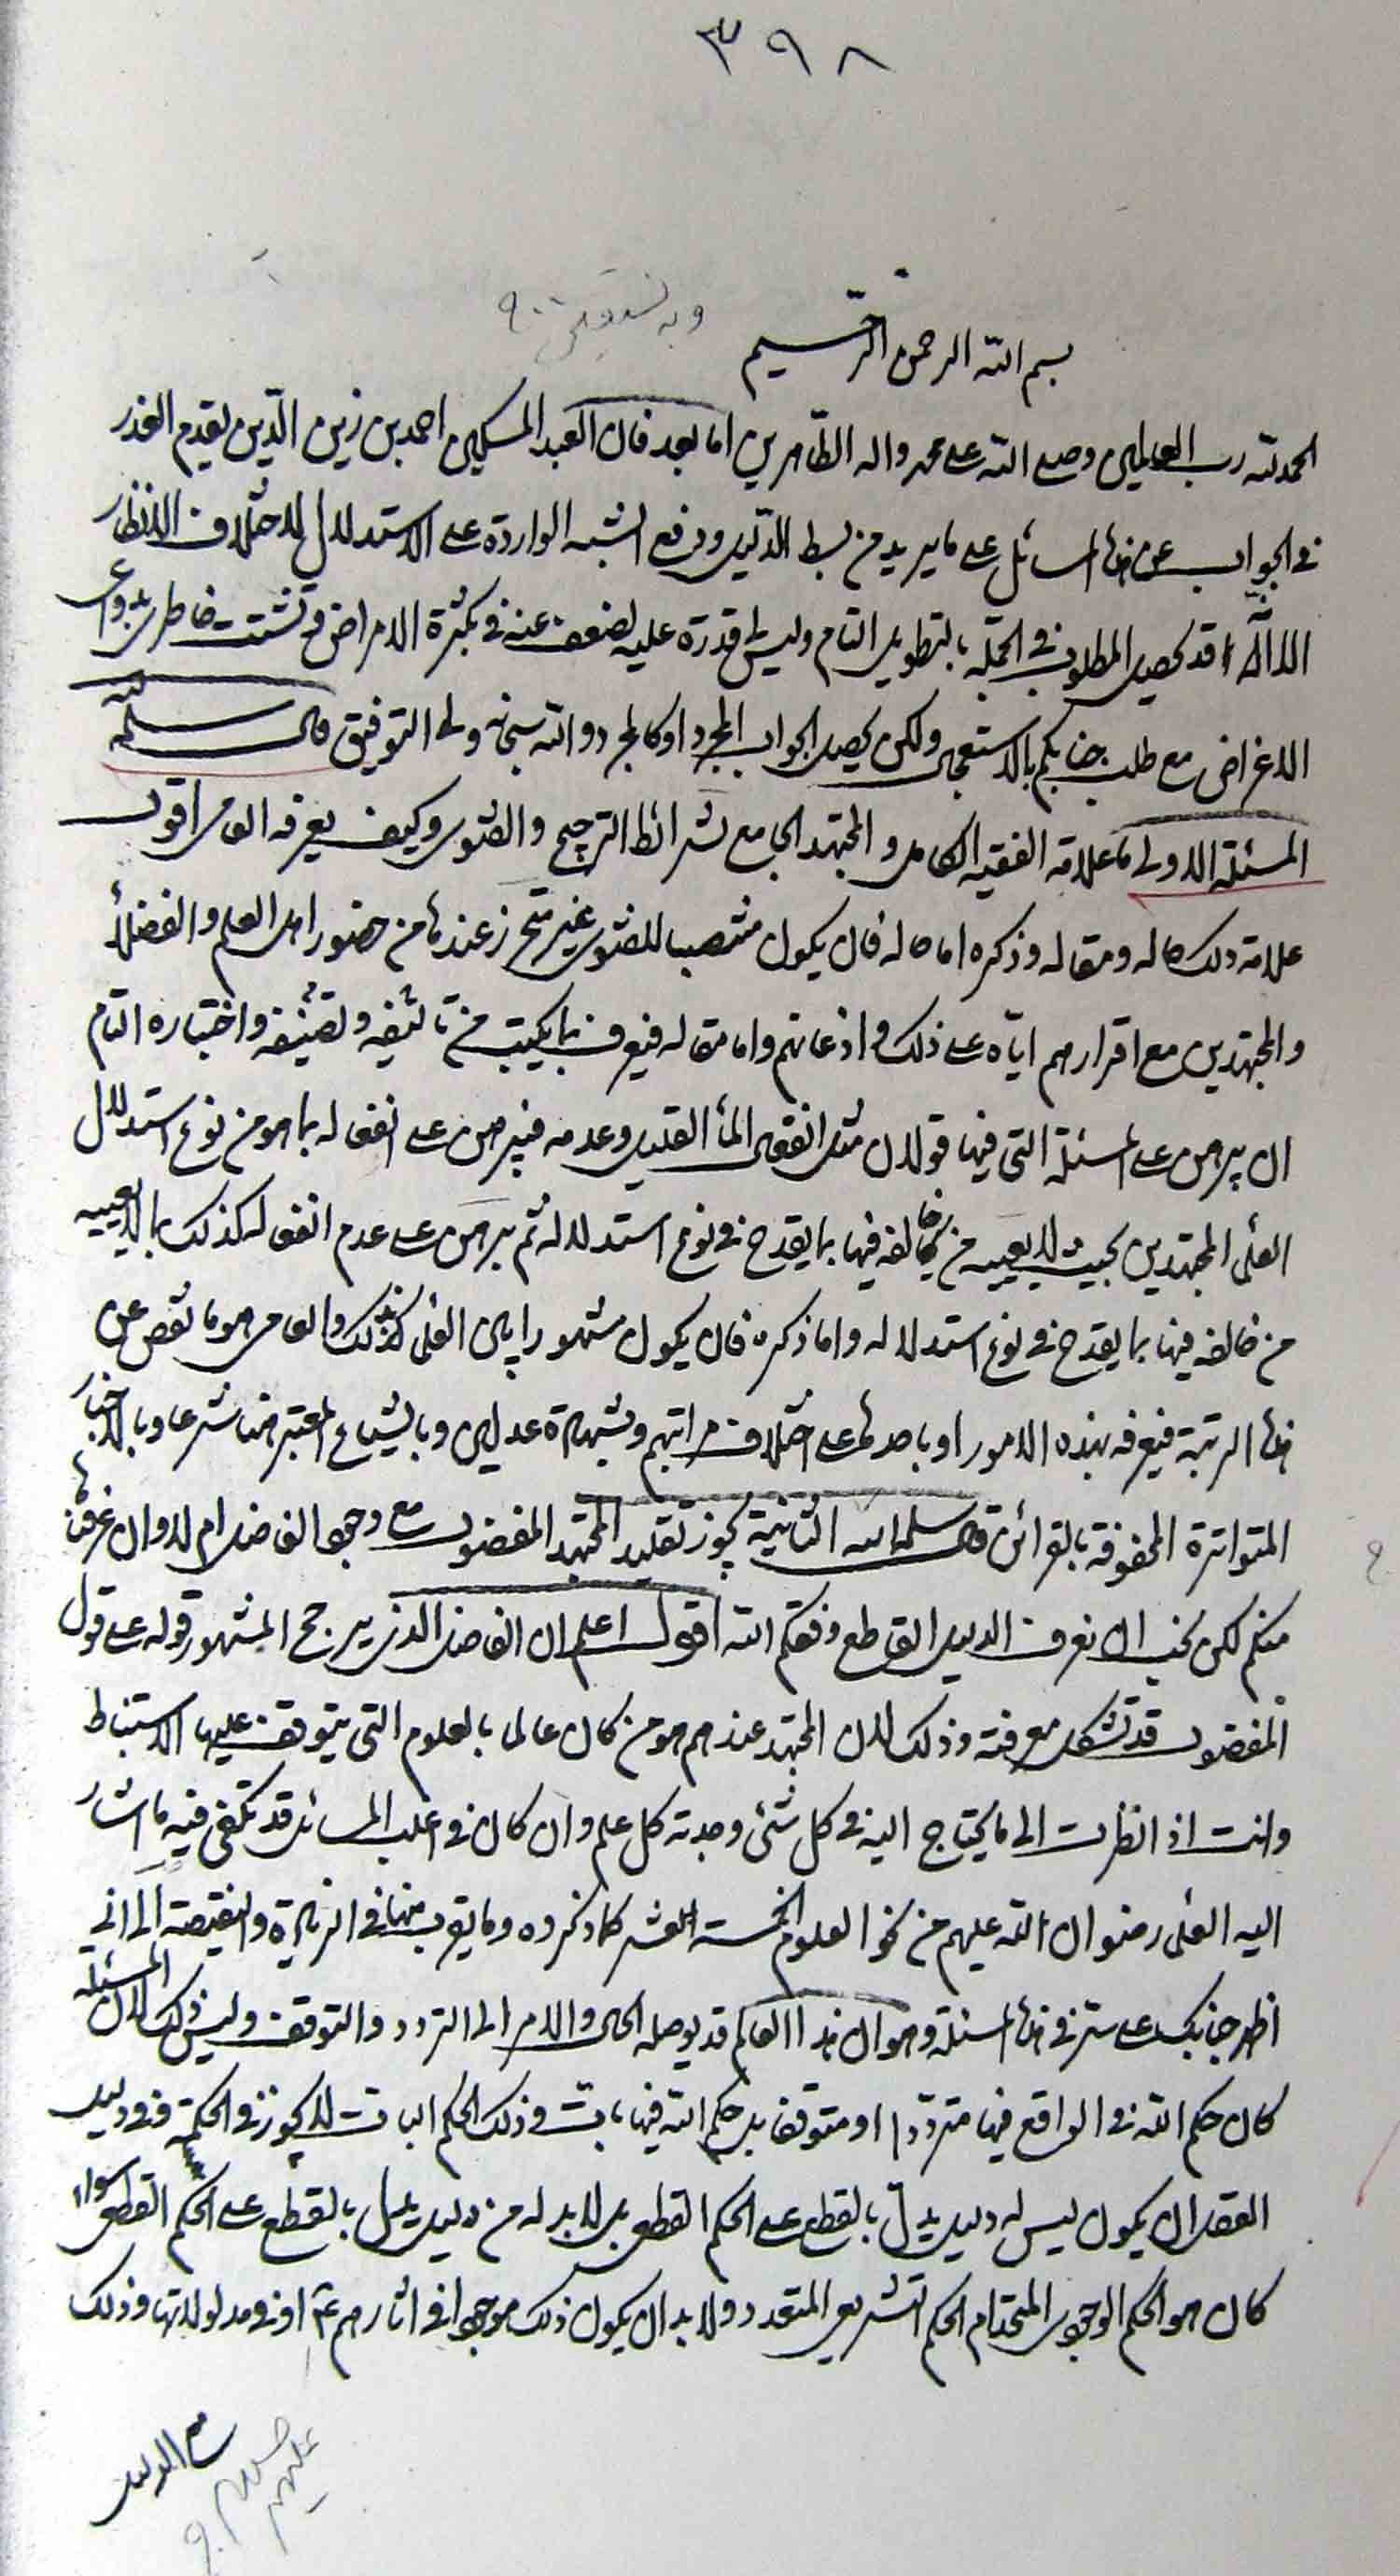 ٣٩٨
بسم الله الرحمن الرحيم
وبه نستعين
الحمد لله رب العالمين وصلى الله على محمد واله الطاهرين اما بعد فان العبد المسكين احمد بن زين الدين يقدم العذر
فى الجواب عن هذه المسائل على ما يريد من بسط الدليل ودفع الشبه الواردة على الاستدلال لاختلاف الانظار
الا انه قد يحصل المطلوب فى الجملة بالتطويل التام وليس لى قدرة عليه لضعف عنه فى بكثرة الامراض وتشتت خاطرى بدواعى
الاغراض مع طلب جنابكم بالاستعجال ولكن يحصل الجواب المجرد او كالمجرد والله سبحانه ولى التوفيق قال سلمه الله
المسئلة الاولى ما علامة الفقيه الكامل والمجتهد الجامع لشرائط الترجيح والفتوى وكيف يعرفه العامى اقول
علامة ذلك حاله ومقاله وذكره اما حاله فان يكون منتصبا للفتوى غير متحرز عندها من حضور اهل العلم والفضلاء
والمجتهدين مع اقرارهم اياه على ذلك واذعانهم واما مقاله فيعرف بما يكتب من تأليفه وتصنيفه واختباره التام
ان يبرهن على المسئلة التى فيها قولان مثل انفعال الماء القليل وعدمه فيبرهن على انفعاله بما هو من نوع استدلال
العلماء المجتهدين بحيث لا يعيبه من يخالفه فيها بما يقدح فى نوع استدلاله ثم يبرهن على عدم انفعاله كذلك بما لا يعيبه
من خالفه فيها بما يقدح فى نوع استدلاله واما ذكره فان يكون مشهورا بين العلماء كذلك والعامى هو ما نقص عن
هذه الرتبة فيعرفه بهذه الامور او باحدها على اختلاف مراتبهم وبشهادة عدلين وبالشياع المعتبر هنا شرعا وبالاخبار
المتواترة المحفوفة بالقرائن قال سلمه الله الثانية يجوز تقليد المجتهد المفضول مع وجود الفاضل ام لا وان عرفناها
منكم لكن نحب ان نعرف الدليل القاطع وفقكم الله اقول اعلم ان الفاضل الذى يرجح المشهور قوله على قول
المفضول قد تشكل معرفته وذلك لان المجتهد عندهم هو من كان عالما بالعلوم التى يتوقف عليها الاستنباط
وانت اذا نظرت الى ما يحتاج اليه فى كل شئ وجدته كل علم وان كان فى اغلب المسائل قد تكفى فيه ما اشار
اليه العلماء رضوان الله عليهم من نحو العلوم الخمسة العشر كما ذكروه وما يقرب منها فى الزيادة والنقيصة الا انى
اظهر جنابك على سر فى هذه المسئلة وهو ان هذا العالم قد يوصله الحال والامر الى التردد والتوقف وليس ذلك لان المسئلة
كان حكم الله فى الواقع فيها مترددا او متوقفا بل حكم الله فيها بات وذلك الحكم البات لا يجوز فى الحكمة وفى دليل
العقل ان يكون ليس له دليل يدل بالقطع على الحكم القطعى بل لا بد له من دليل يدل بالقطع على الحكم القطعى سواء
كان هو الحكم الوجودى المتحد ام الحكم التشريعى المتعدد ولا بد ان يكون ذلك موجودا فى اثارهم ع او فى مدلولاتها وذلك
الدليل
عليهم